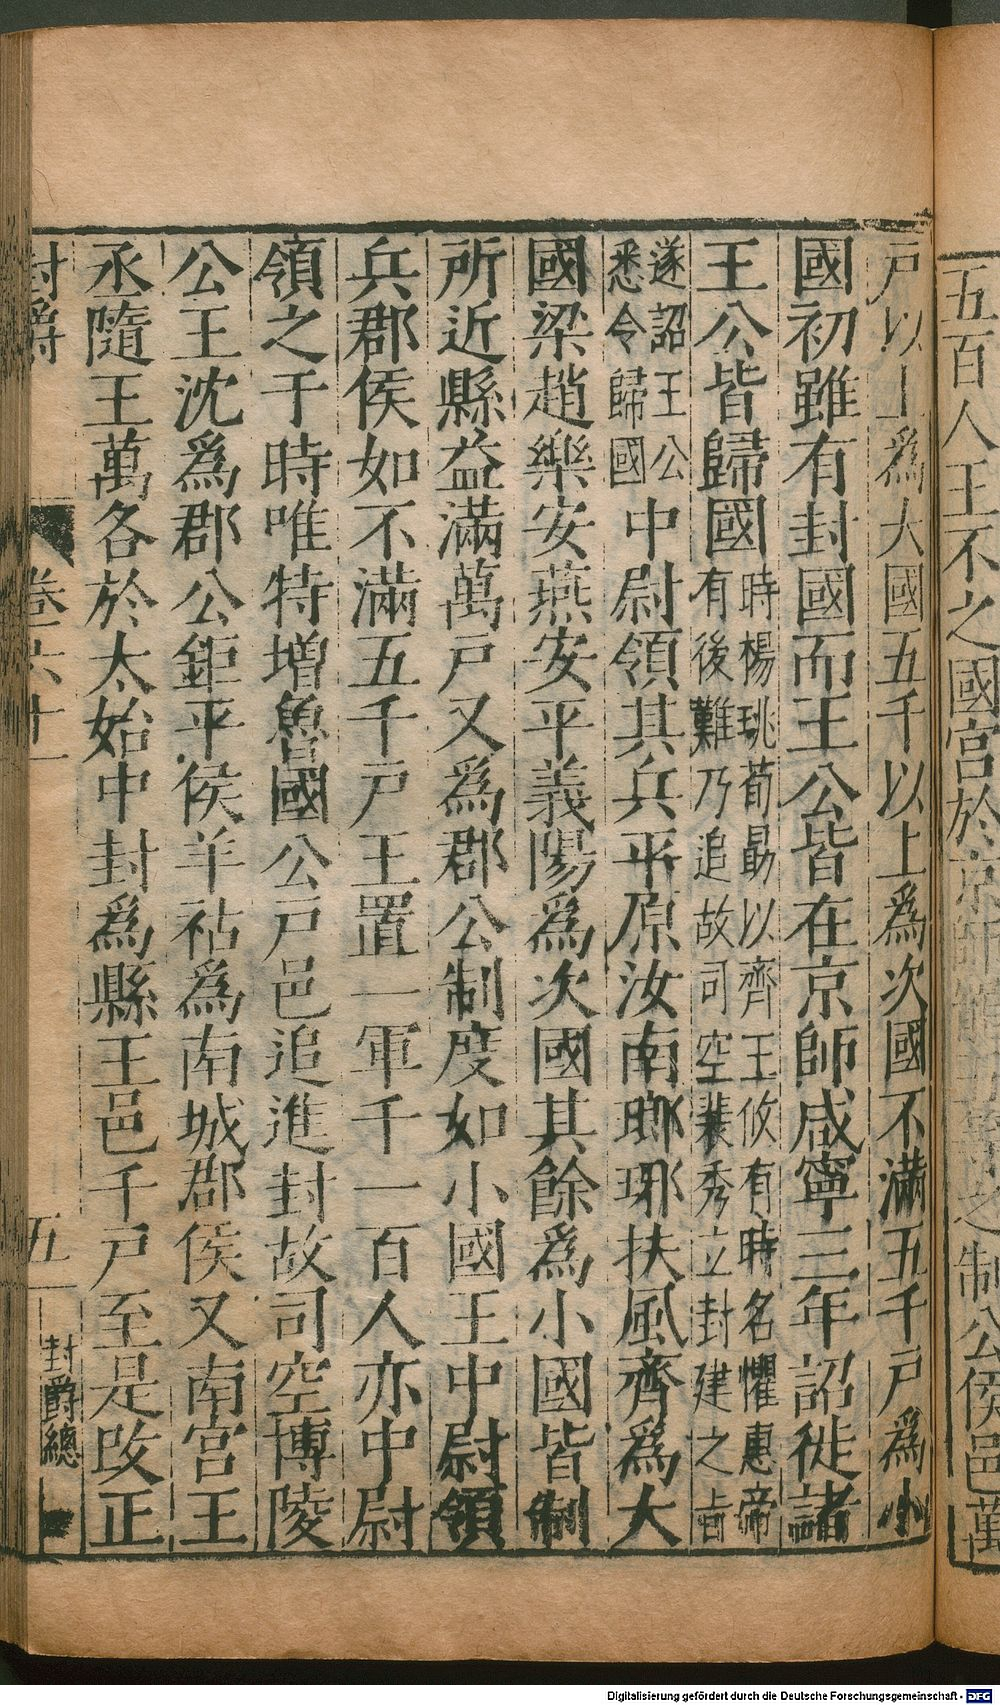 五百人王不之國官於京師 之制公侯邑萬
戸以上爲大國五千以上爲次國不滿五千戸爲小
國初雖有封國而王公皆在京師咸寧三年詔徙諸
王公皆歸國
時楊珧荀勗以齊王攸有時名懼惠帝
有後難乃追故司空裴秀立封建之㫖
遂詔王公
悉令歸國
中尉領其兵平原汝南琅琊扶風齊爲大
國梁趙樂安燕安平義陽爲次國其餘爲小國皆制
所近縣益滿萬戸又爲郡公制度如小國王中尉領
兵郡侯如不滿五千戸王置一軍千一百人亦中尉
領之于時唯特增魯國公戸邑追進封故司空博陵
公王沈爲郡公鉅平侯羊祜爲南城郡侯又南宮王
丞隨王萬各於太始中封爲縣王邑千戸至是改正
封爵 卷六十一 五 封爵總
Digitalisierung gefördert durch die Deutsche Forschungsgemeinschaft - DFG